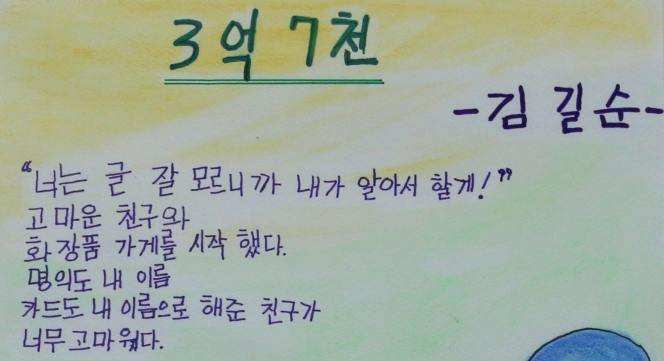 3억 7천
-김 길순-
“너는 글 잘 모르니까 내가 알아서 할게!”
고마운 친구와
화장품 가게를 시작 했다.
명의도 내 이름
카드도 내 이름으로 해준 친구가
너무 고마웠다.